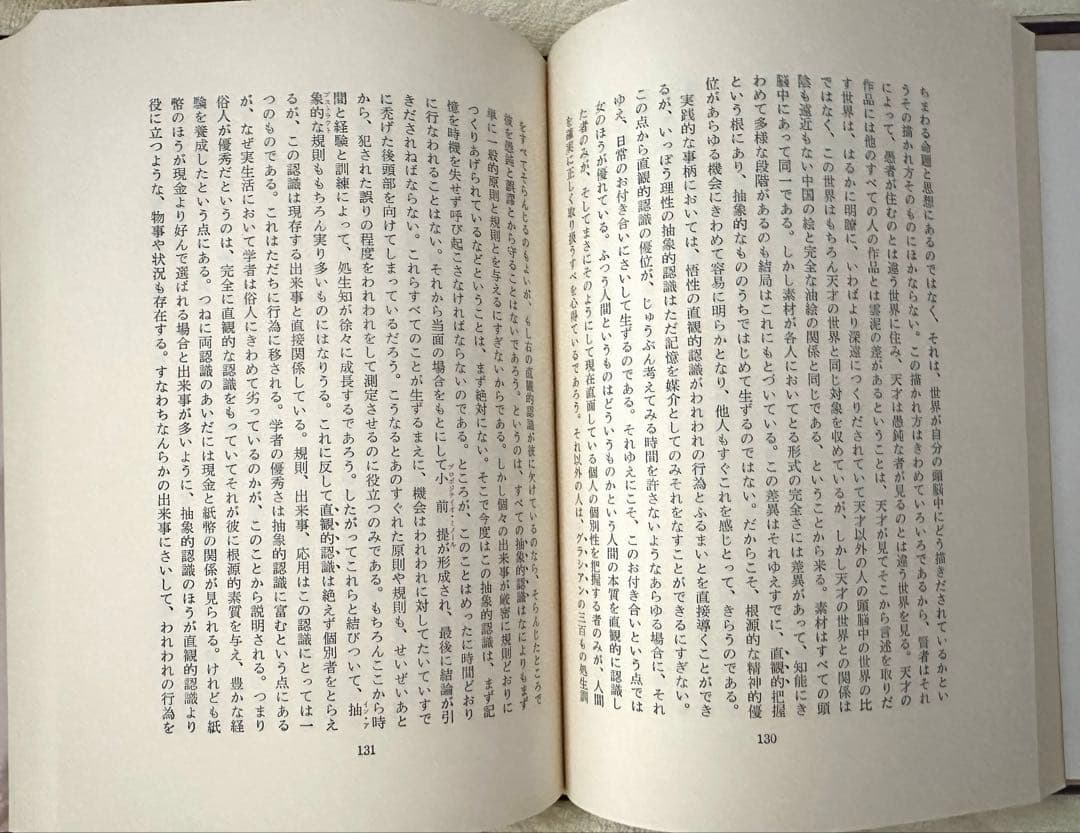 ちまわる命題と思想にあるのではなく、それは、世界が自分の頭脳中にどう描きだされているかとい
うその描かれ方そのものにほかならない。この描かれ方はきわめていろいろであるから、賢者はそれ
によって、愚者が住むのとは違う世界に住み、天才は愚鈍な者が見るのとは違う世界を見る。天才の
作品には他のすべての人の作品とは雲泥の差があるということは、天才が見てそこから言述を取りだ
す世界は、はるかに明瞭に、いわばより深遠につくりだされていて天才以外の人の頭脳中の世界の比
ではなく、この世界はもちろん天才の世界と同じ対象を収めているが、しかし天才の世界との関係は
陰も遠近もない中国の絵と完全な油絵の関係と同じである、ということから来る。素材はすべての頭
脳中にあって同一である。しかし素材が各人においてとる形式の完全さには差異があって、知能にき
わめて多様な段階があるのも結局はこれにもとづいている。この差異はそれゆえすでに、直観的把握
という根にあり、抽象的なもののうちではじめて生ずるのではない。だからこそ、根源的な精神的優
位があらゆる機会にきわめて容易に明らかとなり、他人もすぐこれを感じとって、きらうのである。
実践的な事柄においては、悟性の直観的認識がわれわれの行為とふるまいとを直接導くことができ
るが、いっぽう理性の抽象的認識はただ記憶を媒介としてのみそれをなすことができるにすぎない。
この点から直観的認識の優位が、じゅうぶん考えてみる時間を許さないようなあらゆる場合に、それ
ゆえ、日常のお付き合いにさいして生ずるのである。それゆえにこそ、このお付き合いという点では
女のほうが優れている。ふつう人間というものはどういうものかという人間の本質を直観的に認識し
た者のみが、そしてまさにそのようにして現在直面している個人の個別性を把握する者のみが、人間
を確実に正しく取り扱うすべを心得ているであろう。それ以外の人は、グラシアンの三百もの処生訓
130
をすべてそらんじるのもよいが、もし右の直観的認識が彼に欠けているのなら、そらんじたところで
彼を愚鈍と誤謬とから守ることはないであろう。というのは、すべての抽象的認識はなによりもまず
単に一般的原則と規則とを与えるにすぎないからである。しかし個々の出来事が厳密に規則どおりに
つくりあげられているなどということは、まず絶対にない。そこで今度はこの抽象的認識は、まず記
憶を時機を失せず呼び起こさなければならないのである。ところが、このことはめったに時間どおり
に行なわれることはない。それから当面の場合をもとにして小前提が形成され、最後に結論が引
プロポジティオ・ミノール
きだされねばならない。これらすべてのことが生ずるまえに、機会はわれわれに対してたいていすで
に禿げた後頭部を向けてしまっているだろう。こうなるとあのすぐれた原則や規則も、せいぜいあと
から、犯された誤りの程度をわれわれをして測定させるのに役立つのみである。もちろんここから時
間と経験と訓練によって、処生知が徐々に成長するであろう。したがってこれらと結びついて、抽
イン・ア
象的な規則ももちろん実り多いものにはなりうる。これに反して直観的認識は絶えず個別者をとらえ
ブストラクト
るが、この認識は現存する出来事と直接関係している。規則、出来事、応用はこの認識にとっては一
つのものである。これはただちに行為に移される。学者の優秀さは抽象的認識に富むという点にある
が、なぜ実生活において学者は俗人にきわめて劣っているのかが、このことから説明される。つまり
俗人が優秀だというのは、完全に直観的な認識をもっていてそれが彼に根源的素質を与え、豊かな経
験を養成したという点にある。つねに両認識のあいだには現金と紙幣の関係が見られる。けれども紙
幣のほうが現金より好んで選ばれる場合と出来事が多いように、抽象的認識のほうが直観的認識より
役に立つような、物事や状況も存在する。すなわちなんらかの出来事にさいして、われわれの行為を
131